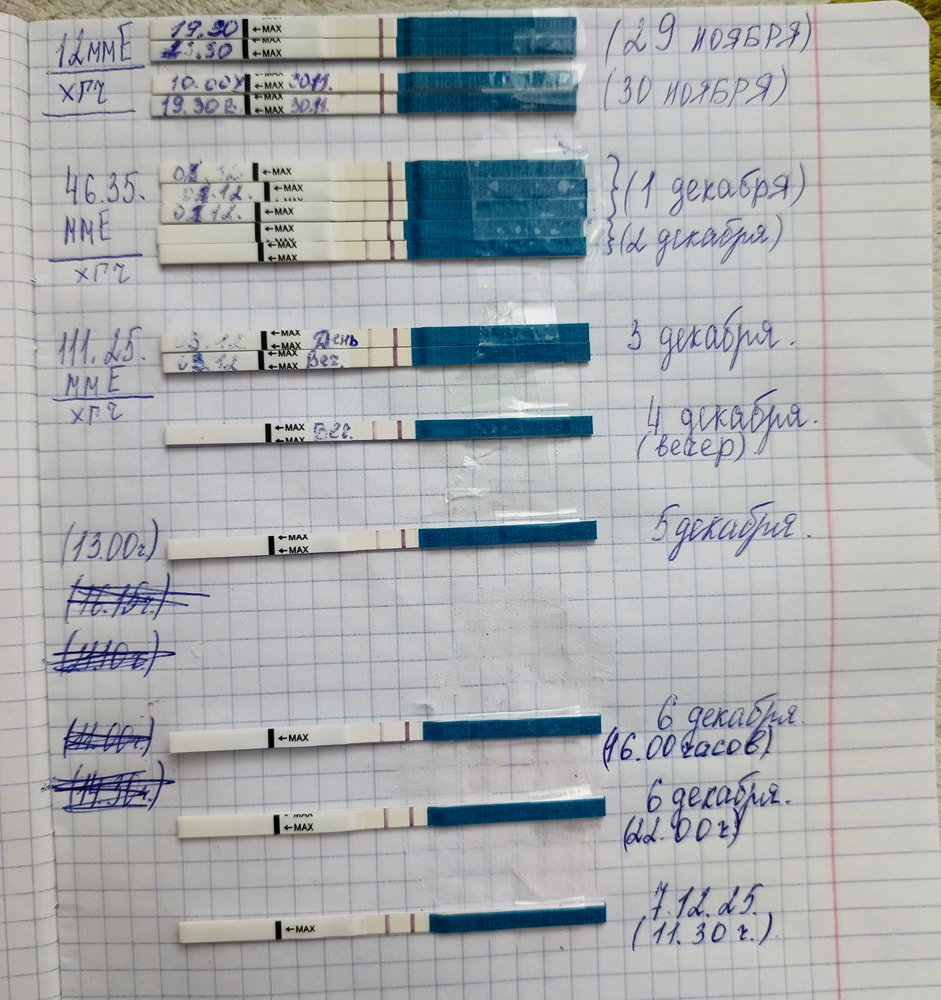 12 ммЕ
хгч
19.30
←MAX
23.30
←MAX
(29 ноября)
10.00ч
←MAX
30.11.
19.30 г.
←MAX
30.11.
(30 ноября)
46.35.
ммЕ
хгч
01.12
←MAX
01.12.
←MAX
01.12.
←MAX
(1 декабря)
←MAX
←MAX
(2 декабря)
111.25.
ммЕ
хгч
03.12
←MAX
День
←MAX
03.12
←MAX
Веч.
←MAX
3 декабря.
←MAX
←MAX
Веч.
4 декабря.
(вечер)
(13.00г)
←MAX
←MAX
5 декабря.
(16.15г.)
(11.00г)
←MAX
6 декабря.
(16.00 часов)
(14.30г.)
MAX
←MAX
6 декабря.
(22.00г)
←MAX
7.12.25.
(11.30 г.)